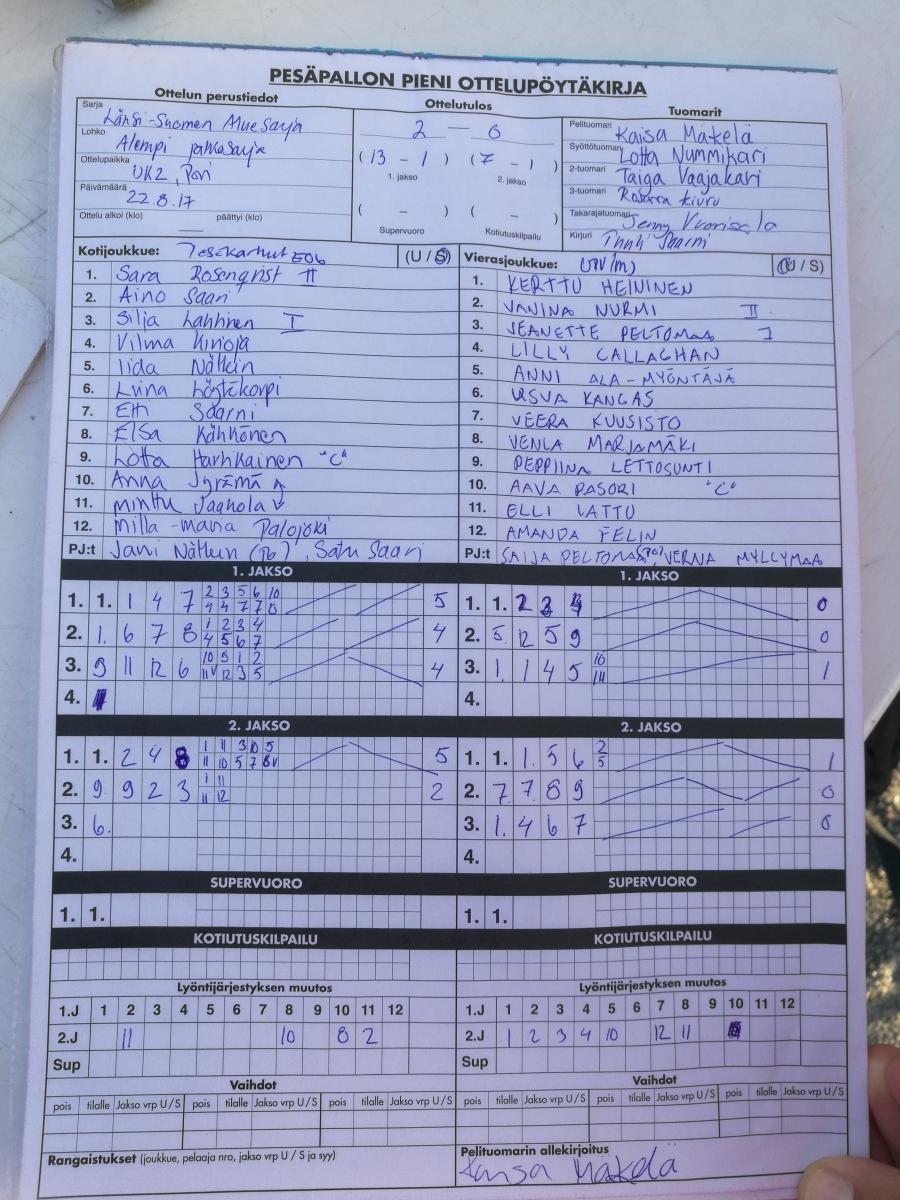 PESÄPALLON PIENI OTTELUPÖYTÄKIRJA
Ottelun perustiedot
Ottelutulos
Tuomarit
Sarja Länsi-Suomen Aluesarja
Lohko Alempi jatkosarja
Ottelupaikka UK2, Pori
Päivämäärä 22.8.17
Ottelu alkoi (klo) päättyi (klo)
2 – 0
(13 – 1) (7 – 1)
1. jakso 2. jakso
( – ) ( – )
Supervuoro Kotiutuskilpailu
Pelituomari Kaisa Mäkelä
Syöttötuomari Lotta Nummikari
2-tuomari Taiga Vaajakari
3-tuomari Kiuru
Takarajatuomari Jenny
Kirjuri Saarni
Kotijoukkue: Pesäkarhut E06 (U / S)
1. Sara Rosenqvist II
2. Aino Saari
3. Silja Lahtinen I
4. Vilma
5. Iida Nätkin
6. Löytökorpi
7. Saarni
8. Elsa Kähkönen
9. Lotta Harhkainen "C"
10. Anna Jyrämä
11. Minttu Jaakola
12. Milla-Maria Palojoki
PJ:t Jani Nätkin (PG), Satu Saari
Vierasjoukkue: (U / S)
1. KERTTU HEININEN
2. VANINA NURMI II
3. JEANETTE PELTOMAA I
4. LILLY CALLAGHAN
5. ANNI ALA-MYÖNTÄJÄ
6. USVA KANGAS
7. VEERA KUUSISTO
8. VENLA MARJAMÄKI
9. PEPPIINA LETTOSUNTI
10. AAVA PASORI "C"
11. ELLI LATTU
12. AMANDA FELIN
PJ:t SAIJA PELTOMAA, VERNA MYLLYMAA
1. JAKSO
1. 1. 1 4 7 2 3 5 6 10 5
4 4 7 7 8
2. 1. 6 7 8 1 2 3 4 4
4 5 6 7
3. 9 11 12 6 10 9 1 2 4
11V 12 3 5
4.
1. JAKSO
1. 1. 2 3 4 0
2. 5. 12 5 9 0
3. 1. 1 4 5 1
4.
2. JAKSO
1. 1. 2 4 8 1 11 3 10 5 5
11 10 5 7 8V
2. 9 9 2 3 1 11 2
11 12
3. 6.
4.
2. JAKSO
1. 1. 1. 5 6 2 1
5
2. 7. 7 8 9 0
3. 1. 4 6 7 0
4.
SUPERVUORO
1. 1.
SUPERVUORO
1. 1.
KOTIUTUSKILPAILU
KOTIUTUSKILPAILU
Lyöntijärjestyksen muutos
1.J 1 2 3 4 5 6 7 8 9 10 11 12
2.J 11 10 8 2
Sup
Lyöntijärjestyksen muutos
1.J 1 2 3 4 5 6 7 8 9 10 11 12
2.J 1 2 3 4 10 12 11
Sup
Vaihdot
pois tilalle Jakso vrp U / S pois tilalle Jakso vrp U / S pois tilalle Jakso vrp U / S
Vaihdot
pois tilalle Jakso vrp U / S pois tilalle Jakso vrp U / S pois tilalle Jakso vrp U / S
Rangaistukset (joukkue, pelaaja nro, jakso vrp U / S ja syy)
Pelituomarin allekirjoitus
Kaisa Mäkelä